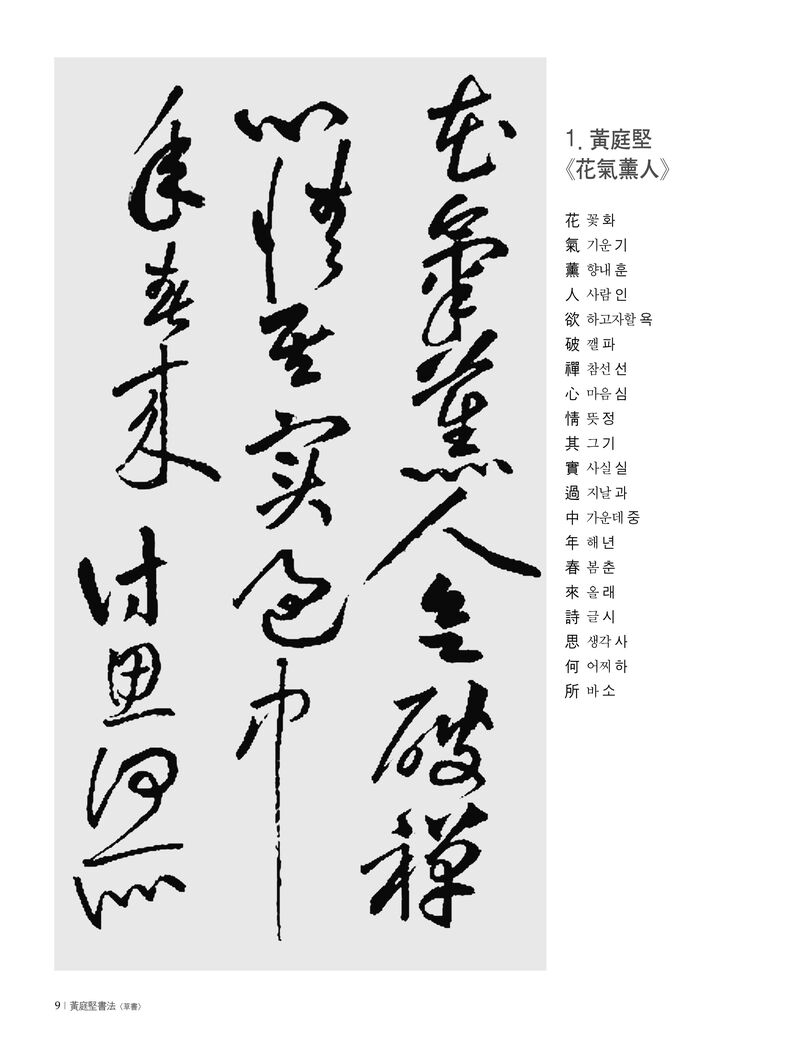 花氣薰人欲破禪
心情其實過中
年春來詩思何所
1. 黃庭堅
《花氣薰人》
花 꽃 화
氣 기운 기
薰 향내 훈
人 사람 인
欲 하고자할 욕
破 깰 파
禪 참선 선
心 마음 심
情 뜻 정
其 그 기
實 사실 실
過 지날 과
中 가운데 중
年 해 년
春 봄 춘
來 올 래
詩 글 시
思 생각 사
何 어찌 하
所 바 소
9 | 黃庭堅書法〈草書〉